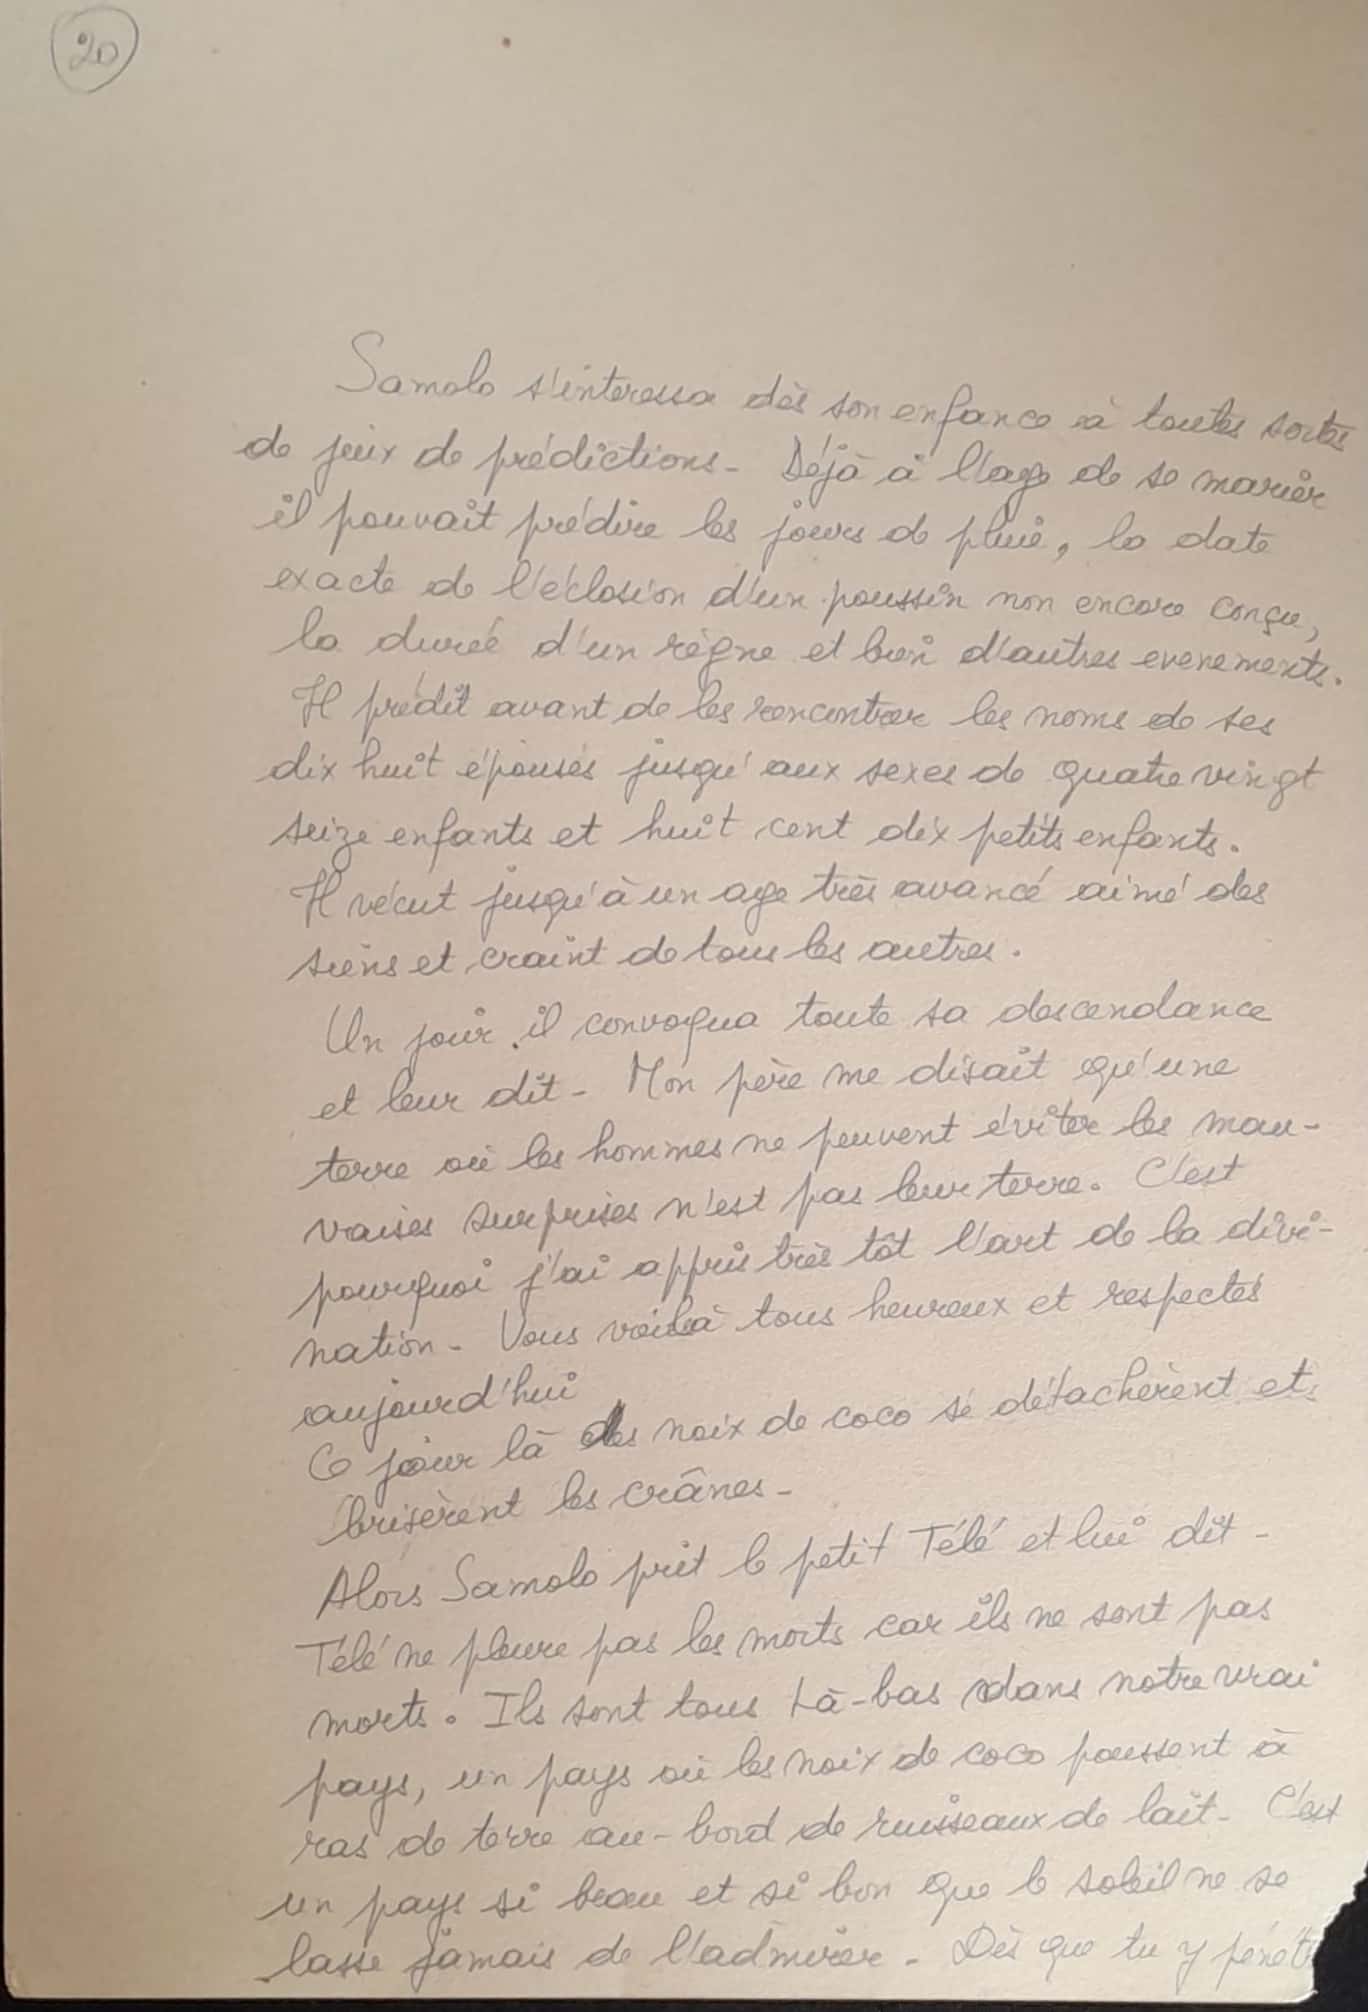 20
Samolo s'interessa dès son enfance à toutes sortes
de jeux de prédictions - Déjà à l'age de se marier
il pouvait prédire les jours de pluie, la date
exacte de l'éclosion d'un poussin non encore conçu,
la durée d'un règne et bien d'autres evenements.
Il prédit avant de les rencontrer les noms de ses
dix huit épouses jusqu'aux sexes de quatre vingt
seize enfants et huit cent dix petits enfants.
Il vécut jusqu'à un age très avancé aimé des
siens et craint de tous les autres.
Un jour il convoqua toute sa descendance
et leur dit - Mon père me disait qu'une
terre où les hommes ne peuvent éviter les mau-
vaises surprises n'est pas leur terre. C'est
pourquoi j'ai appris très tôt l'art de la divi-
nation - Vous voilà tous heureux et respectés
aujourd'hui
Ce jour là des noix de coco se détachèrent et
brisèrent les crânes -
Alors Samolo prit le petit Télé et lui dit -
Télé ne pleure pas les morts car ils ne sont pas
morts. Ils sont tous là-bas dans notre vrai
pays, un pays où les noix de coco poussent à
ras de terre au-bord de ruisseaux de lait - C'est
un pays si beau et si bon que le soleil ne se
lasse jamais de l'admirer - Dès que tu y